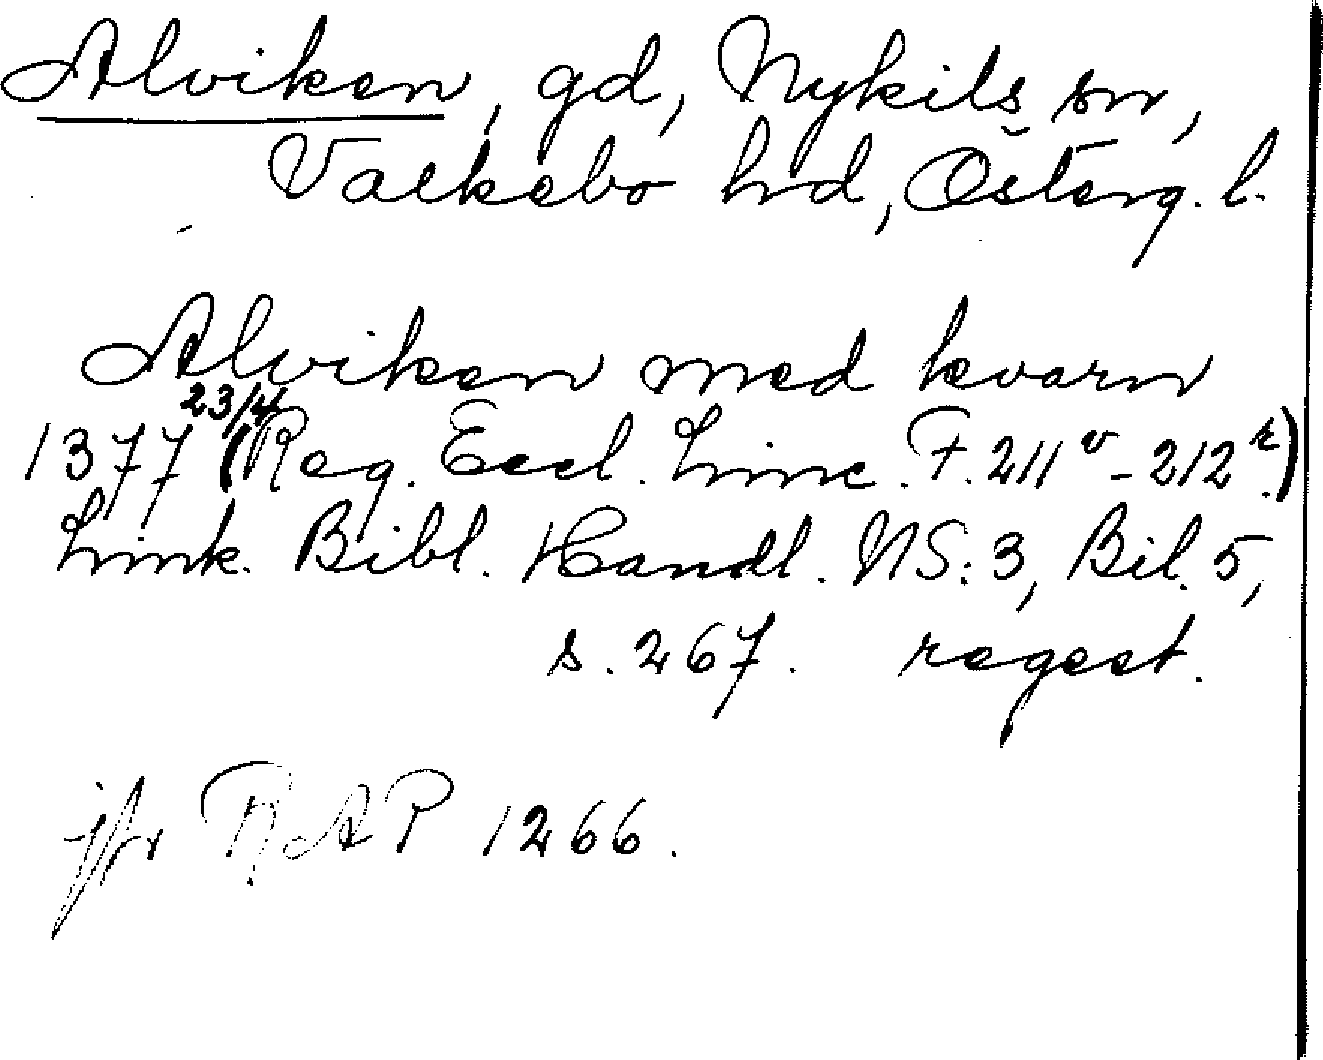 Alviken, gd, Nykils sn,
Valkebo hd, Österg. l.
Alviken med kvarn
1377 23/4 (Reg. Eccl. Linc. F. 211v - 212r.)
Link. Bibl. Handl. NS: 3, Bil. 5,
s. 267. regest.
jfr RAP 1266.